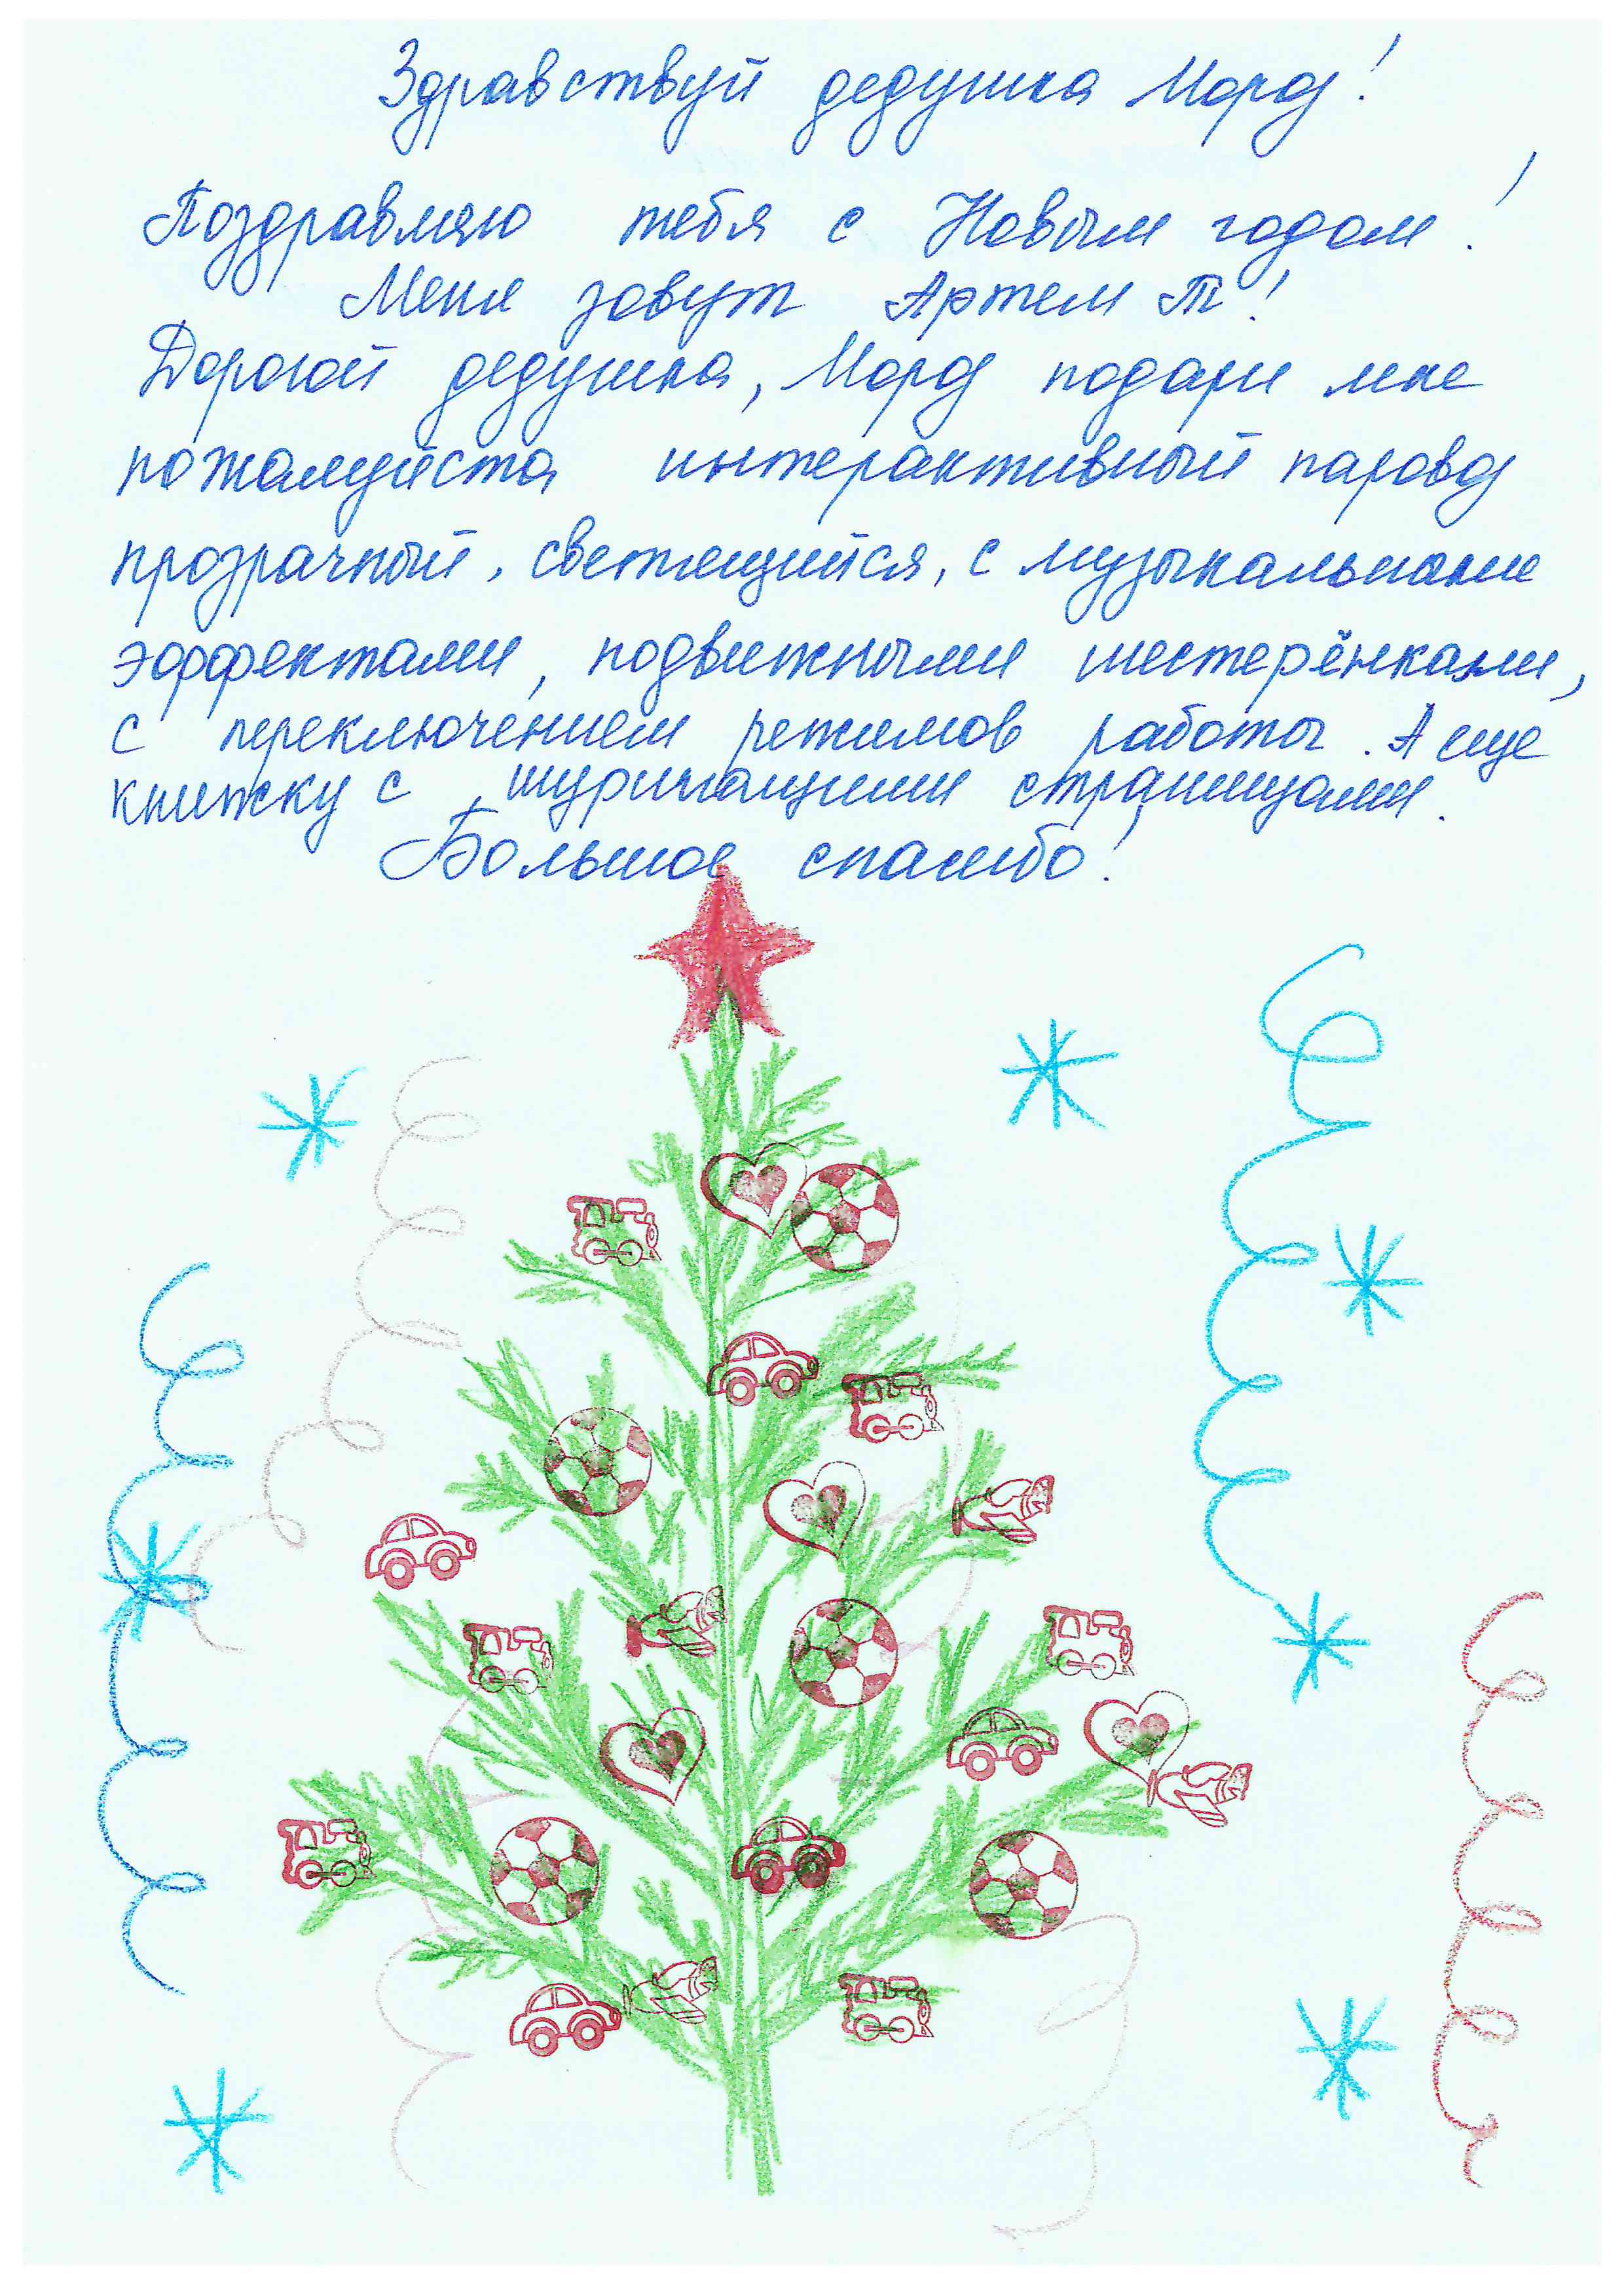 Здравствуй дедушка Мороз!
Поздравляю тебя с Новым годом!
Меня зовут Артем Т!
Дорогой дедушка, Мороз подари мне
пожалуйста интерактивный паровоз
прозрачный, светящийся, с музыкальными
эффектами, подвижными шестерёнками,
с переключением режимов работы. А еще
книжку с шуршащими страницами.
Большое спасибо!